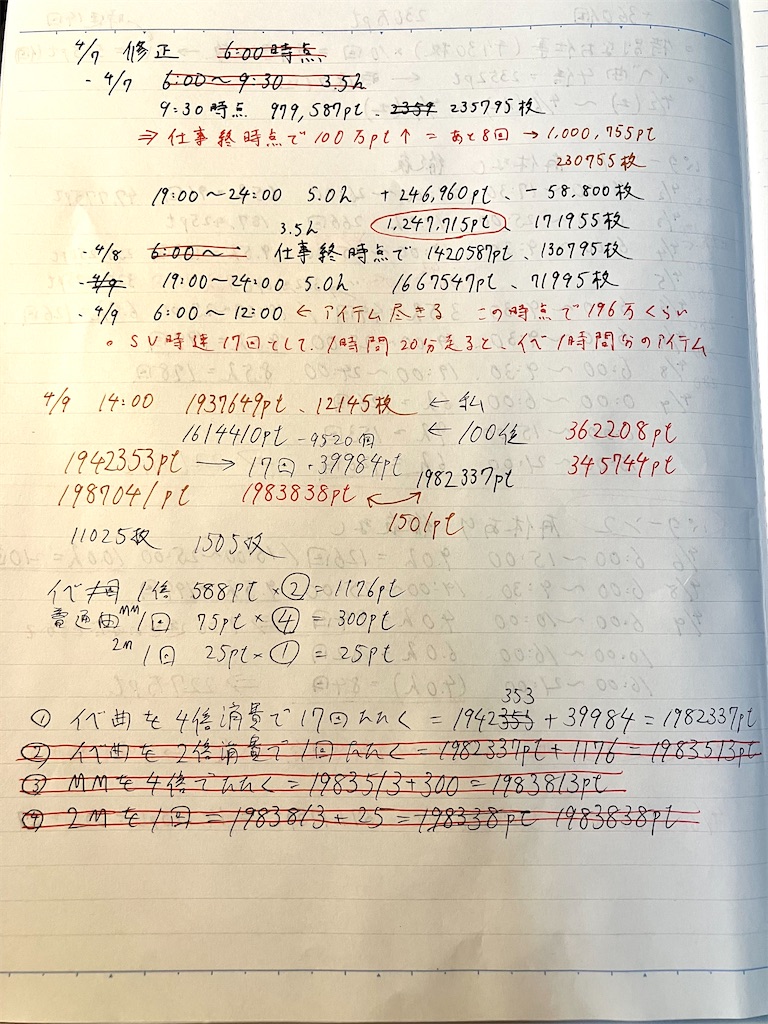 4/7 修正 6:00時点
- 4/7 6:00～9:30 3.5h
9:30時点 979,587pt、2359 235795枚
⇒ 仕事終時点で100万pt↑ = あと8回 → 1,000,755pt
230755枚
19:00～24:00 5.0h +246,960pt、-58,800枚
3.5h 1,247,715pt、171955枚
- 4/8 6:00～ 仕事終時点で 1420587pt、130795枚
- 4/9 19:00～24:00 5.0h 1667547pt、71995枚
- 4/9 6:00～12:00 ← アイテム尽きる この時点で196万くらい
。SV時速17回として、1時間20分走ると、イベ1時間分のアイテム
4/9 14:00 1937649pt、12145枚 ← 私
1614410pt -9520個 ← 100位 362208pt
1942353pt → 17回・39984pt 1982337pt 345744pt
1987041pt 1983838pt
1501pt
11025枚 1505枚
イベ 1倍 588pt×②=1176pt
普通曲MM 1回 75pt×④=300pt
2M 1回 25pt×①=25pt
353
① イベ曲を4倍消費で17回たたく = 1942353 + 39984 = 1982337pt
② イベ曲を2倍消費で1回たたく = 1982337pt + 1176 = 1983513pt
③ MMを4倍でたたく = 1983513+300 = 1983813pt
④ 2Mを1回 = 1983813 + 25 = 198338pt 1983838pt